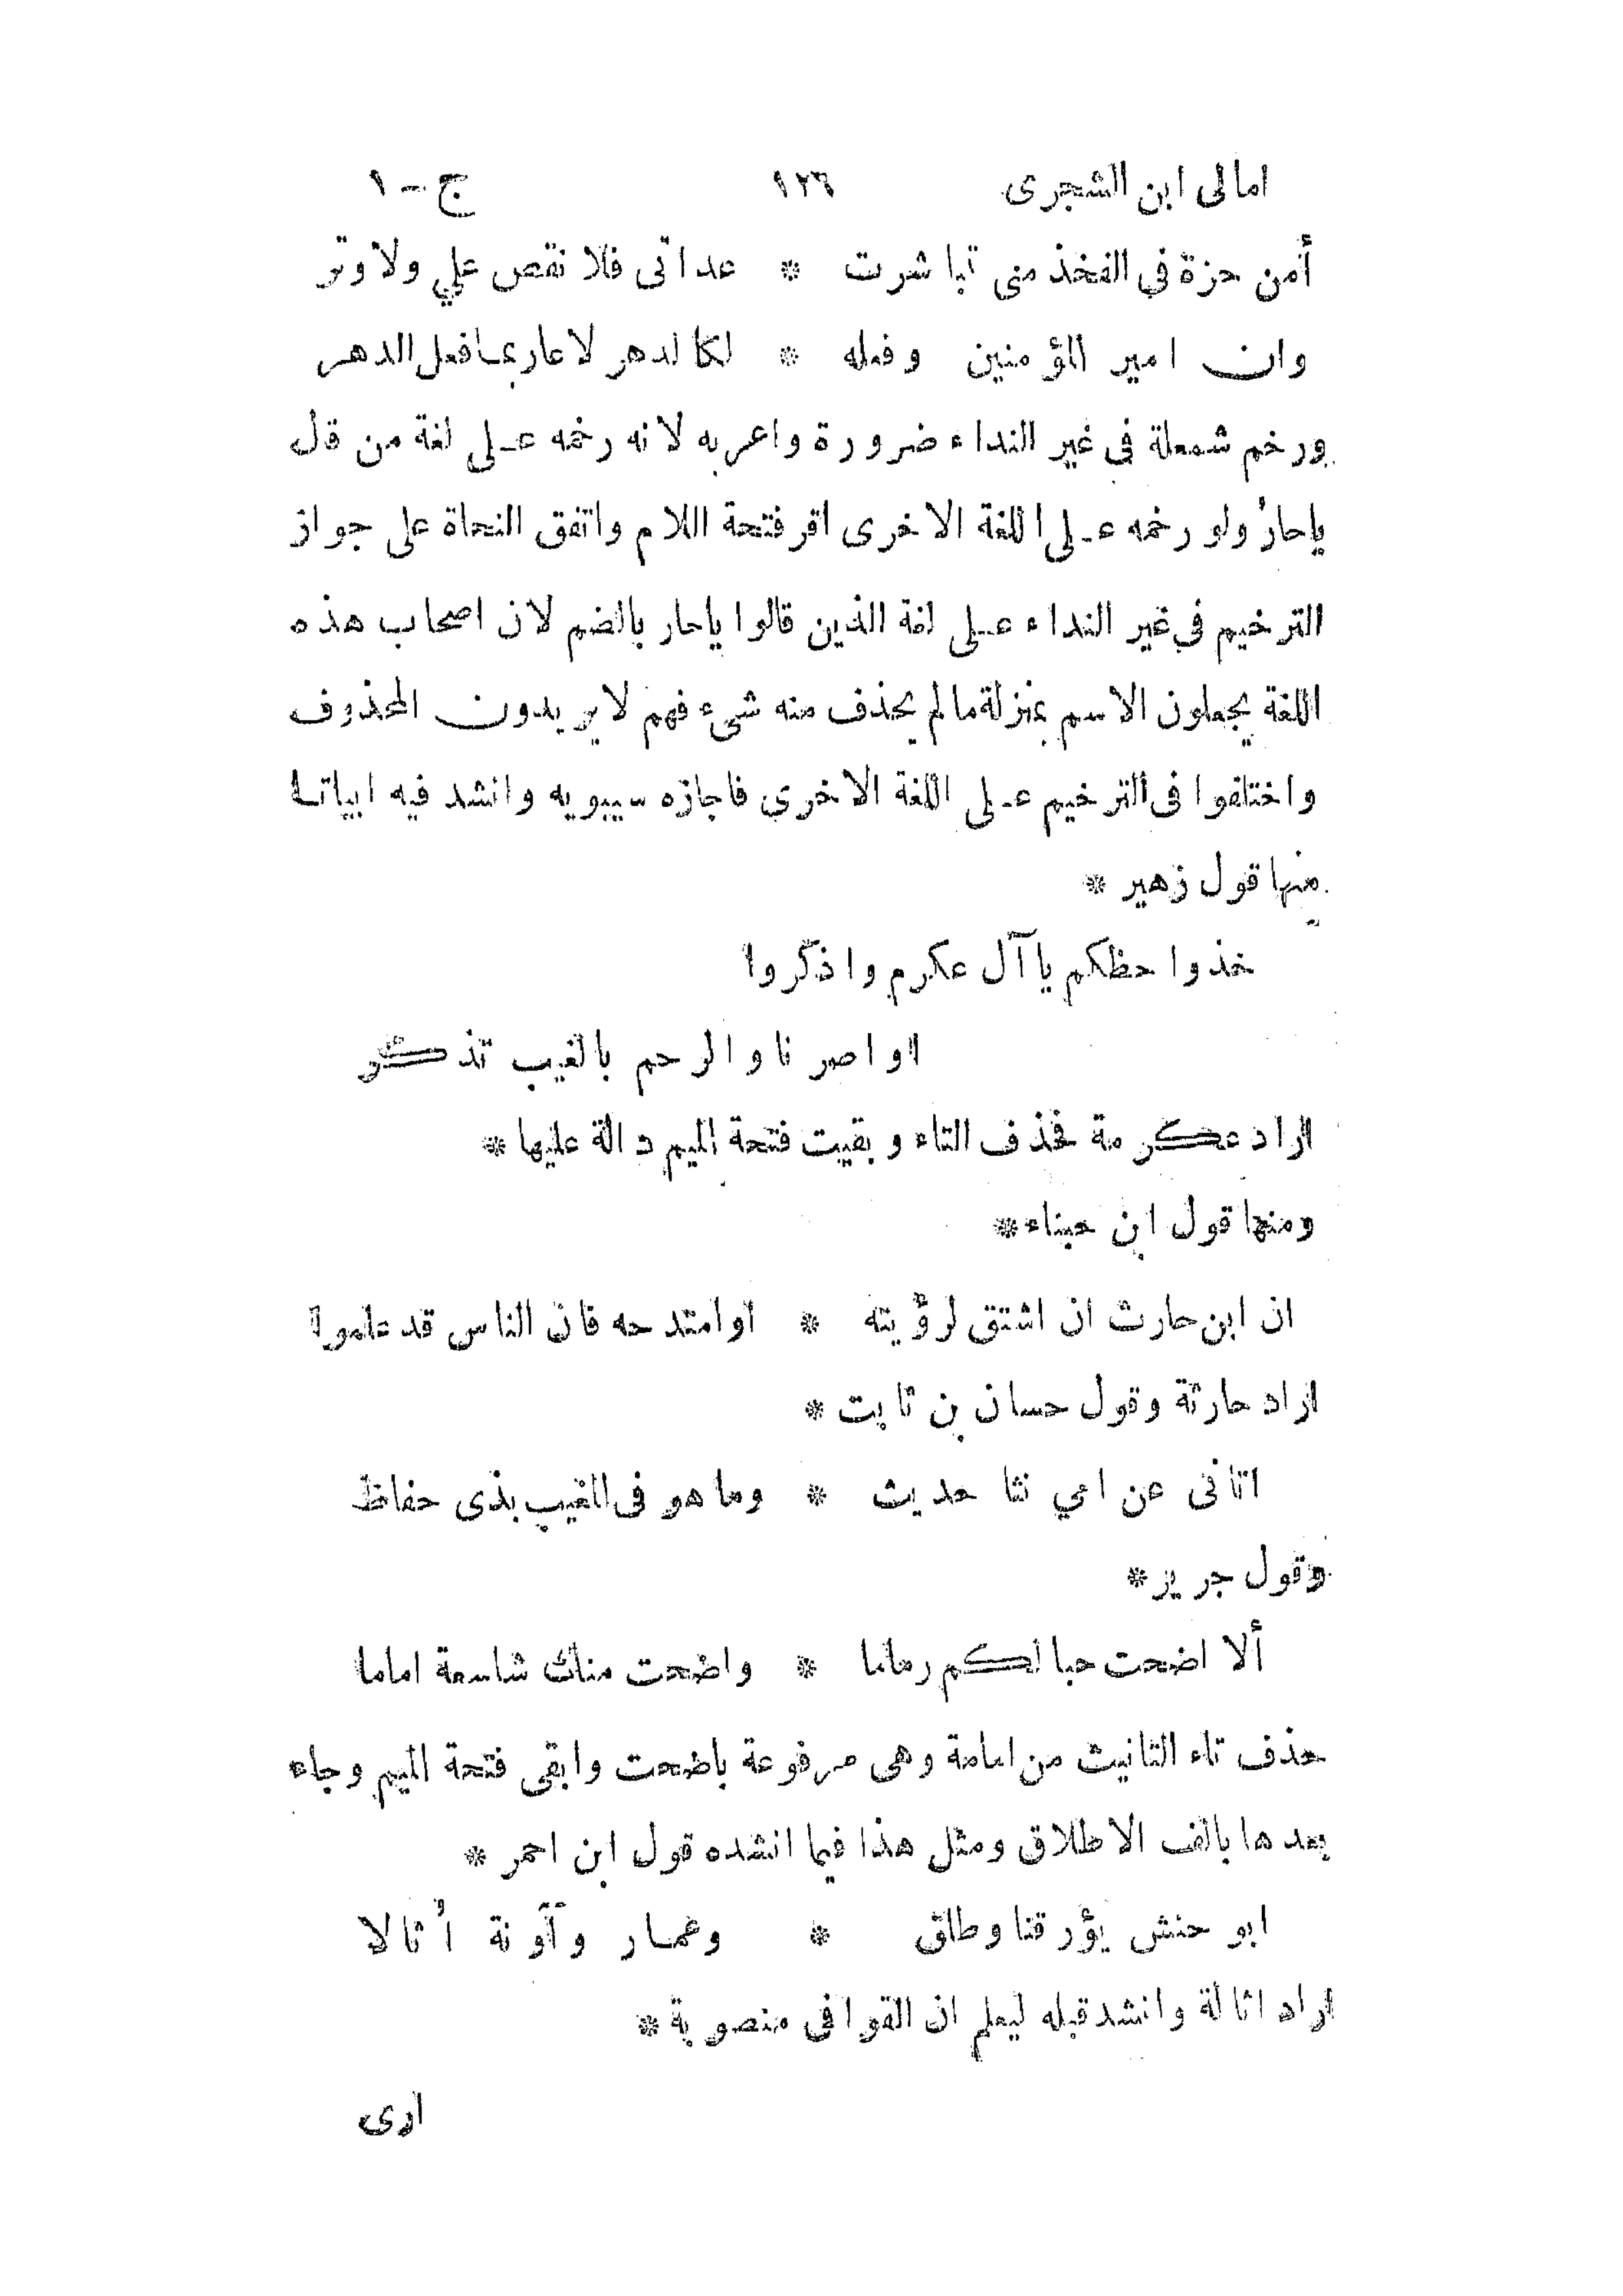 امالى ابن الشجرى ١٢٦ ج - ١
أمن حزة فى الفخذ منى تباشرت * عداتى فلا نقص علي ولا وتر
وان امير المؤمنين وفعله * لكالدهر لا عار بما فعل الدهر
ورخم شمعلة فى غير النداء ضرورة واعربه لانه رخمه على لغة من قال
ياحارُ ولو رخمه على اللغة الاخرى اقر فتحة اللام واتفق النحاة على جواز
الترخيم فى غير النداء على لغة الذين قالوا ياحار بالضم لان اصحاب هذه
اللغة يجعلون الاسم بمنزلة ما لم يحذف منه شىء فهم لا يريدون المحذوف
واختلفوا فى الترخيم على اللغة الاخرى فاجازه سيبويه وانشد فيه ابياتا
منها قول زهير *
خذوا حظكم يا آل عكرم واذكروا
اواصرنا والرحم بالغيب تذكر
اراد عكرمة فحذف التاء وبقيت فتحة الميم دالة عليها *
ومنها قول ابن حبناء *
ان ابن حارث ان اشتق لرؤيته * اوامتدحه فان الناس قد علموا
اراد حارثة وقول حسان بن ثابت *
اتانى عن امي نثا حديث * وما هو فى الغيب بذى حفاظ
وقول جرير *
ألا اضحت حبالكم رماما * واضحت منك شاسعة اماما
حذف تاء التانيث من امامة وهى مرفوعة باضحت وابقى فتحة الميم وجاء
بعدها بالف الاطلاق ومثل هذا فيما انشده قول ابن احمر *
ابو حنش يؤرقنا وطلق * وعمار وآونة أثالا
اراد اثالة وانشد قبله ليعلم ان القوافى منصوبة *
ارى